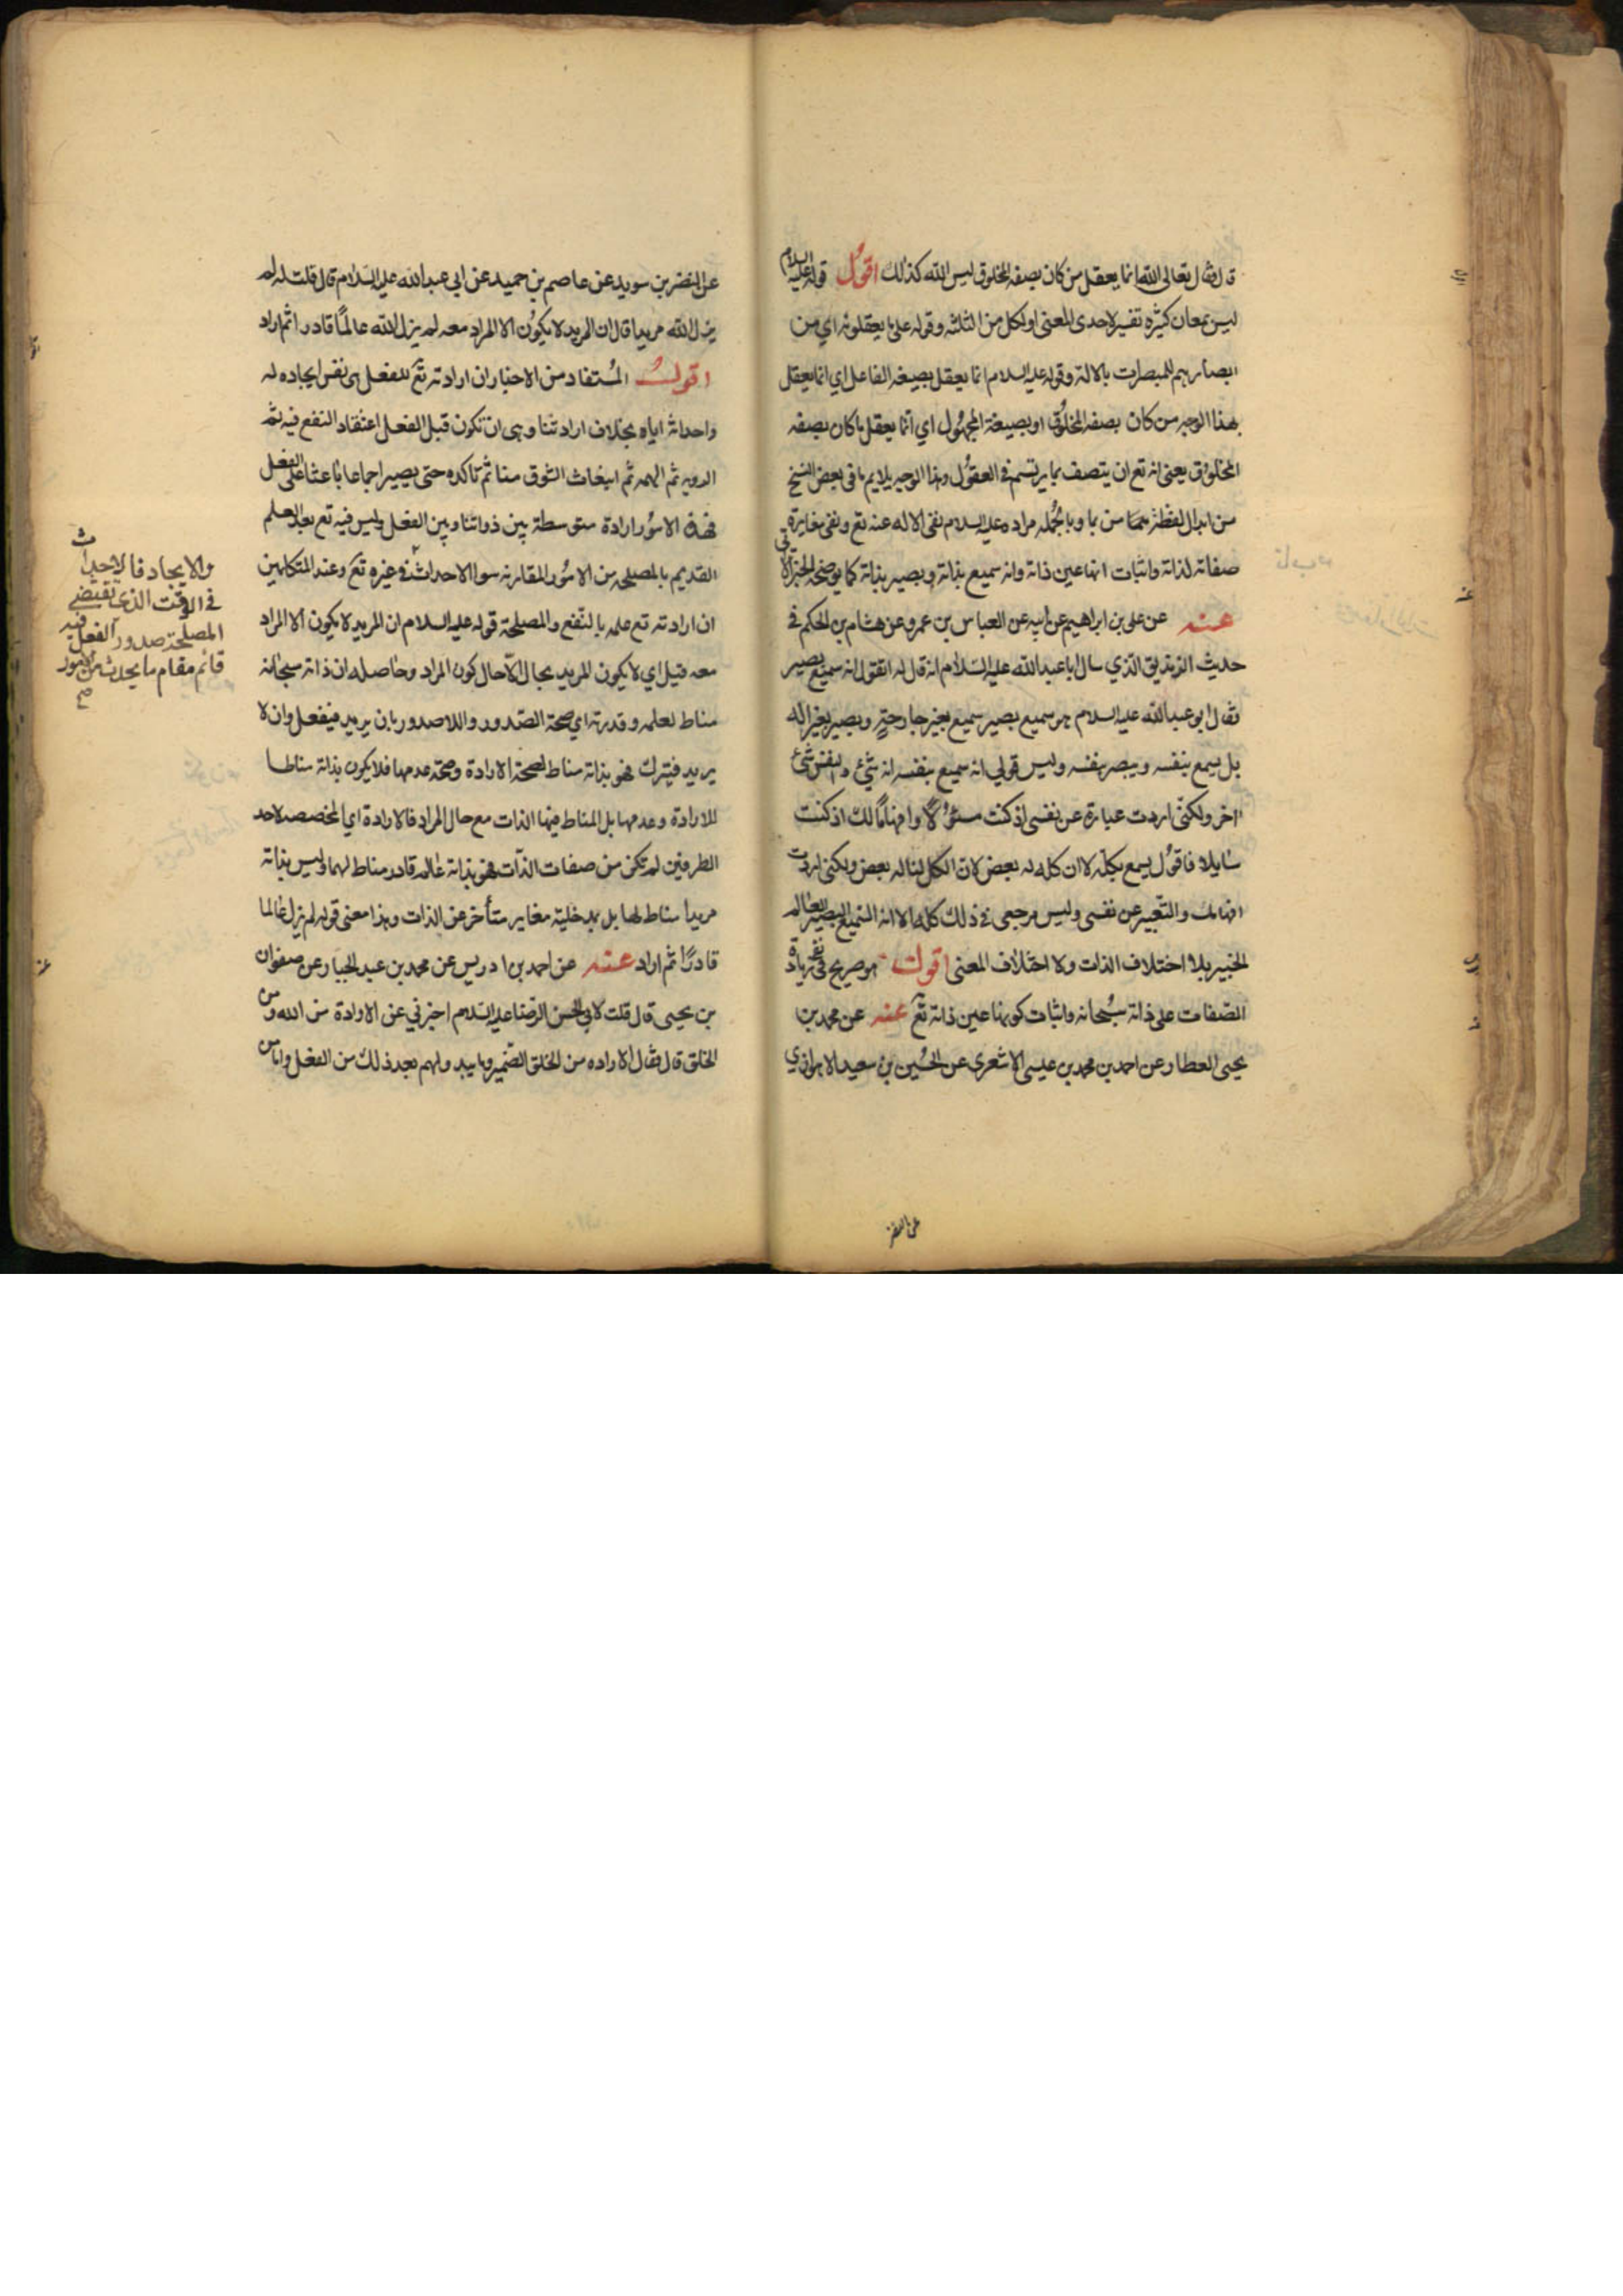 قال فقال تعالى الله انما يعقل من كان بصفه المخلوق ليس الله كذلك اقول قوله عليه السلام
ليس بمعان كثيره تفسير لاحدى المعنى او لكل من الثلثه وقوله على ما يعقلونه اي من
ابصارهم للمبصرات بالالة وقوله عليه السلام انما يعقل بصيغه الفاعل اي انما يعقل
بهذا الوجه من كان بصفه المخلوق او بصيغة المجهول اي انما يعقل ما كان بصفه
المخلوق يعني انه تع ان يتصف بما يرتسم في العقول وهذا الوجه يلايم ما في بعض النسخ
من ابدال لفظة من بما وبالجمله مراده عليه السلام نفى الاله عنه تع ونفى مغايرة
صفاته لذاته واثبات انها عين ذاته وانه سميع بذاته وبصير بذاته كما يوضحه الخبر الاتي
عنه عن علي بن ابراهيم عن ابيه عن العباس بن عمرو عن هشام بن الحكم في
حديث الزنديق الذي سال ابا عبد الله عليه السلام انه قال له اتقول انه سميع بصير
فقال ابو عبد الله عليه السلام هو سميع بصير سميع بغير جارحة وبصير بغير اله
بل يسمع بنفسه ويبصر بنفسه وليس قولي انه سميع بنفسه انه شئ والنفس شئ
اخر ولكني اردت عبارة عن نفسي اذ كنت مسئولا وافهاما لك اذ كنت
سايلا فاقول يسمع بكله لا ان كله له بعض لان الكل لنا له بعض ولكني اردت
افهامك والتعبير عن نفسي وليس مرجعي في ذلك كله الا انه السميع البصير العالم
الخبير بلا اختلاف الذات ولا اختلاف المعنى اقول هو صريح في نفى زيادة
الصفات على ذاته سبحانه واثبات كونها عين ذاته تع عنه عن محمد بن
يحيى العطار عن احمد بن محمد بن عيسى الاشعري عن الحسين بن سعيد الاهوازي
عن النضر
عن النضر بن سويد عن عاصم بن حميد عن ابي عبد الله عليه السلام قال قلت له لم
يزل الله مريدا قال ان المريد لا يكون الا لمراد معه لم يزل الله عالما قادرا ثم اراد
اقول المستفاد من الاخبار ان ارادته تع للفعل هي نفس ايجاده له
واحداثه اياه بخلاف ارادتنا وهي ان تكون قبل الفعل اعتقاد النفع فيه ثم
الرويه ثم الهمه ثم انبعاث الشوق منا ثم تاكده حتى يصير اجماعا باعثا على الفعل
فهذه الامور ارادة متوسطة بين ذواتنا وبين الفعل وليس فيه تع بعد العلم
القديم بالمصلحه من الامور المقارنه سوا الاحداث في غيره تع وعند المتكلمين
ان ارادته تع علمه بالنفع والمصلحة قوله عليه السلام ان المريد لا يكون الا لمراد
معه قيل اي لا يكون المريد بحال الا حال كون المراد وحاصله ان ذاته سبحانه
مناط لعلمه وقدرته اي صحة الصدور واللاصدور بان يريد فيفعل وان لا
يريد فيترك فهو بذاته مناط لصحة الارادة وصحة عدمها فلا يكون بذاته مناطا
للارادة وعدمها بل المناط فيها الذات مع حال المراد فالارادة اي المخصصه لاحد
الطرفين لم تكن من صفات الذات فهو بذاته عالم قادر مناط لهما وليس بذاته
مريدا مناط لها بل بمدخلية مغاير متأخر عن الذات وهذا معنى قوله لم يزل عالما
قادرا ثم اراد عنه عن احمد بن ادريس عن محمد بن عبد الجبار عن صفوان
بن يحيى قال قلت لابي الحسن الرضا عليه السلام اخبرني عن الارادة من الله ومن
الخلق قال فقال الاراده من الخلق الضمير وما يبدو لهم بعد ذلك من الفعل واما من
والايجاد فالاحداث
في الوقت الذي تقتضي
المصلحة صدور الفعل فيه
قائم مقام ما يحدث من الامور
صح